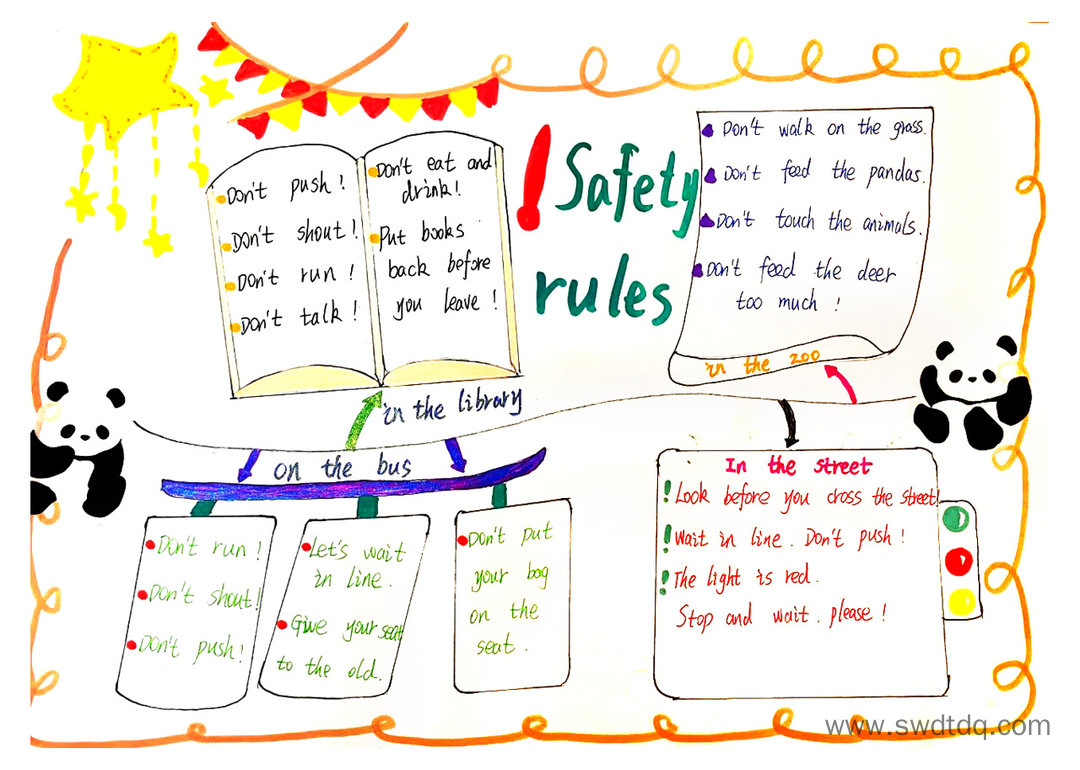 Safety
rules
Don't push!
Don't shout!
Don't run!
Don't talk!
Don't eat and
drink!
Put books
back before
you leave!
in the library
Don't walk on the grass.
Don't feed the pandas.
Don't touch the animals.
Don't feed the deer
too much!
in the zoo
on the bus
Don't run!
Don't shout!
Don't push!
Let's wait
in line.
Give your seat
to the old.
Don't put
your bag
on the
seat.
In the street
Look before you cross the street!
Wait in line. Don't push!
The light is red.
Stop and wait. please!
www.swdtdq.com